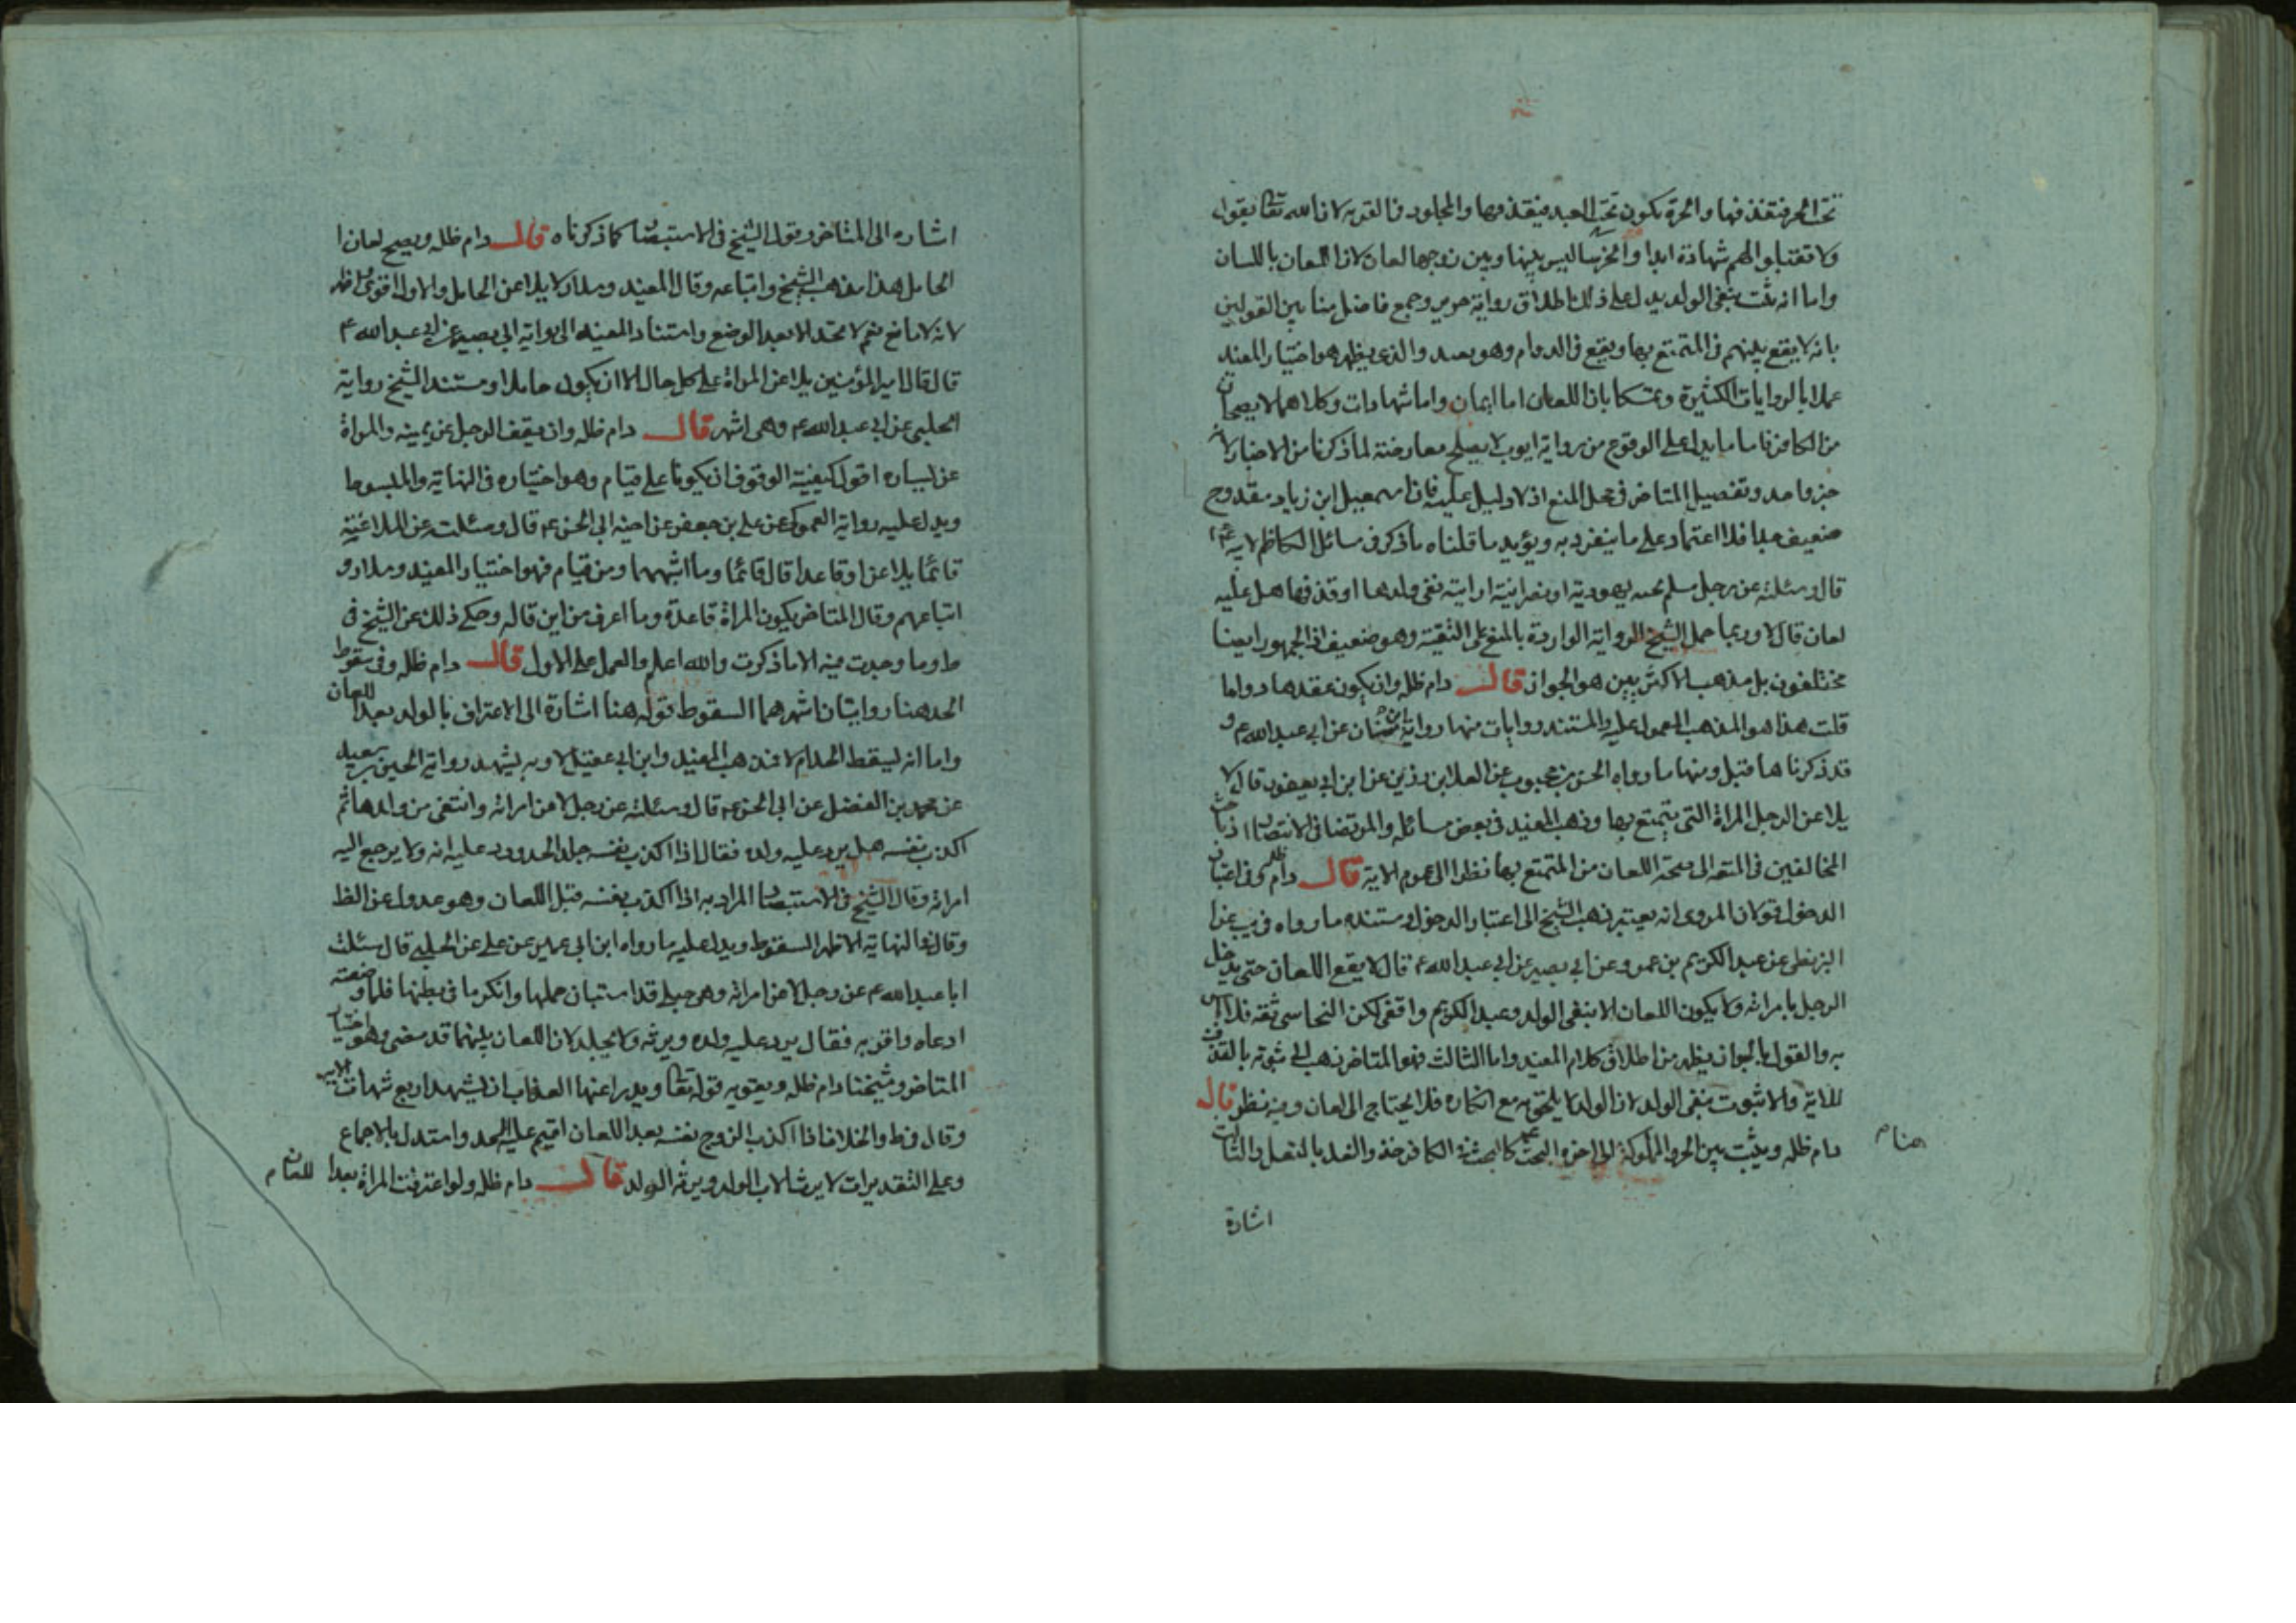 تحت الحر فيقذفها والحرة يكون تحت العبد فيقذفها والمجلود في الفرية لان الله تعالى يقول
ولا تقبلوا لهم شهادة ابدا والخرسا ليس بينها وبين زوجها لعان لان اللعان باللسان
واما انه يثبت بنفى الولد يدل على ذلك اطلاق رواية حريز وجمع فاضل منا بين القولين
بانه لا يقع بينهم فى المتمتع بها ويقع فى الدوام وهو بعيد والذى يظهر هو اختيار المفيد
عملا بالروايات الكثيرة وتمسكا بان اللعان اما ايمان واما شهادات وكلاهما لا يصحان
من الكافر فاما ما يدل على الوقوع من رواية ايوب لا يصلح معارضة لما ذكرنا من الاخبار لانه
خبر واحد وتفصيل المتاخر فى محل المنع اذ لا دليل عليه فان اسمعيل ابن زياد مقدوح
ضعيف جدا فلا اعتماد على ما ينفرد به ويؤيد ما قلناه ما ذكر فى مسائل الكاظم
قال وسئلته عن رجل مسلم تحته يهودية او نصرانية او امة نفى ولدها او قذفها هل عليه
لعان قال لا وربما حمل الشيخ الرواية الواردة بالمنع على التقية وهو ضعيف اذ الجمهور ايضا
مختلفون بل مذهب الاكثرين هو الجواز قال دام ظله وان يكون عقدها دواما
قلت هذا هو المذهب المعمول عليه والمستند روايات منها رواية ابن سنان عن ابى عبد الله ع و
قد ذكرناها قبل ومنها ما رواه الحسن بن محبوب عن العلا بن رزين عن ابن ابى يعفور قال لا
يلاعن الرجل المراة التى يتمتع بها وذهب المفيد فى بعض مسائله والمرتضا فى الانتصار
المخالفين فى المتعه الى صحة اللعان من المتمتع بها نظرا الى عموم الاية قال دام ظله وفى اعتبار
الدخول قولان المروى انه يعتبر ذهب الشيخ الى اعتبار الدخول ومستنده ما رواه فى يب عن
البزنطى عن عبد الكريم بن عمرو عن ابى بصير عن ابى عبد الله ع قال لا يقع اللعان حتى يدخل
الرجل بامراته ولا يكون اللعان الا بنفى الولد وعبد الكريم واقفى لكن النجاشى ثقه فلا باس
به والقول بالجواز يظهر من اطلاق كلام المفيد واما الثالث فهو المتاخر ذهب الى ثبوته بالقذف
للاية ولا ثبوت بنفى الولد لان الولد لا يلحق به مع انكاره فلا يحتاج الى لعان وفيه نظر قال
دام ظله ويثبت بين الحر والمملوكة الى اخره البحث هنا كالبحث فى الكافر خذو النعل بالنعل والثالث
هنا م
اشارة
اشاره الى المتاخر وقول الشيخ فى الاستبصار كما ذكرناه قال دام ظله ويصح لعان ا
الحامل هذا مذهب الشيخ واتباعه وقال المفيد وسلار لا يلاعن الحامل والاول اقوى
لانه لا مانع نعم لا تحد الا بعد الوضع واستناد المفيد الى رواية ابى بصير عن ابى عبد الله ع
قال قال امير المؤمنين يلاعن المراة على كل حال الا ان يكون حاملا ومستند الشيخ رواية
الحلبى عن ابى عبد الله ع وهى اشهر قال دام ظله وان يقف الرجل عن يمينه والمراة
عن يساره اقول كيفية الوقوف ان يكونا على قيام وهو اختياره فى النهاية والمبسوط
ويدل عليه رواية العمركى عن على بن جعفر عن اخيه ابى الحسن ع قال وسئلت عن الملاعنة
قائما يلاعن او قاعدا قال قائما وما اشبههما ومن قيام فهو اختيار المفيد وسلار و
اتباعهم وقال المتاخر يكون المراة قاعدة وما اعرف من اين قاله وحكى ذلك عن الشيخ فى
ط وما وجدت فيه الا ما ذكرت والله اعلم والعمل على الاول قال دام ظله وفى سقوط
الحد هنا روايتان اشهرهما السقوط قوله هنا اشارة الى الاعتراف بالولد بعد اللعان
واما انه ليسقط الحد ام لا فذهب المفيد وابن ابى عقيل لا وبه يشهد رواية الحسين بن سعيد
عن محمد بن الفضل عن ابى الحسن ع قال وسئلته عن رجل لاعن امراته وانتفى من ولدها ثم
اكذب نفسه هل يرد عليه ولده فقال اذا اكذب نفسه جلد الحد ورد عليه ابنه ولا يرجع اليه
امراته وقال الشيخ فى الاستبصار المراد به اذا اكذب نفسه قبل اللعان وهو عدول عن الظ
وقال فى النهاية الاظهر السقوط ويدل عليه ما رواه ابن ابى عمير عن على عن الحلبى قال سئلت
ابا عبد الله ع عن رجل لاعن امراته وهى حبلى قد استبان حملها وانكر ما فى بطنها فلما وضعته
ادعاه واقر به فقال يرد عليه ولده ويرثه ولا يجلد لان اللعان بينهما قد مضى وهو اختيار
المتاخر وشيخنا دام ظله ويقويه قوله تعالى ويدرا عنها العذاب ان يشهد اربع شهادات الاية
وقال فى ط والخلاف اذا اكذب الزوج نفسه بعد اللعان اقيم عليه الحد واستدل بالاجماع
وعلى التقديرات لا يرث الاب الولد ويرثه الولد قال دام ظله ولو اعترفت المراة بعد اللعان